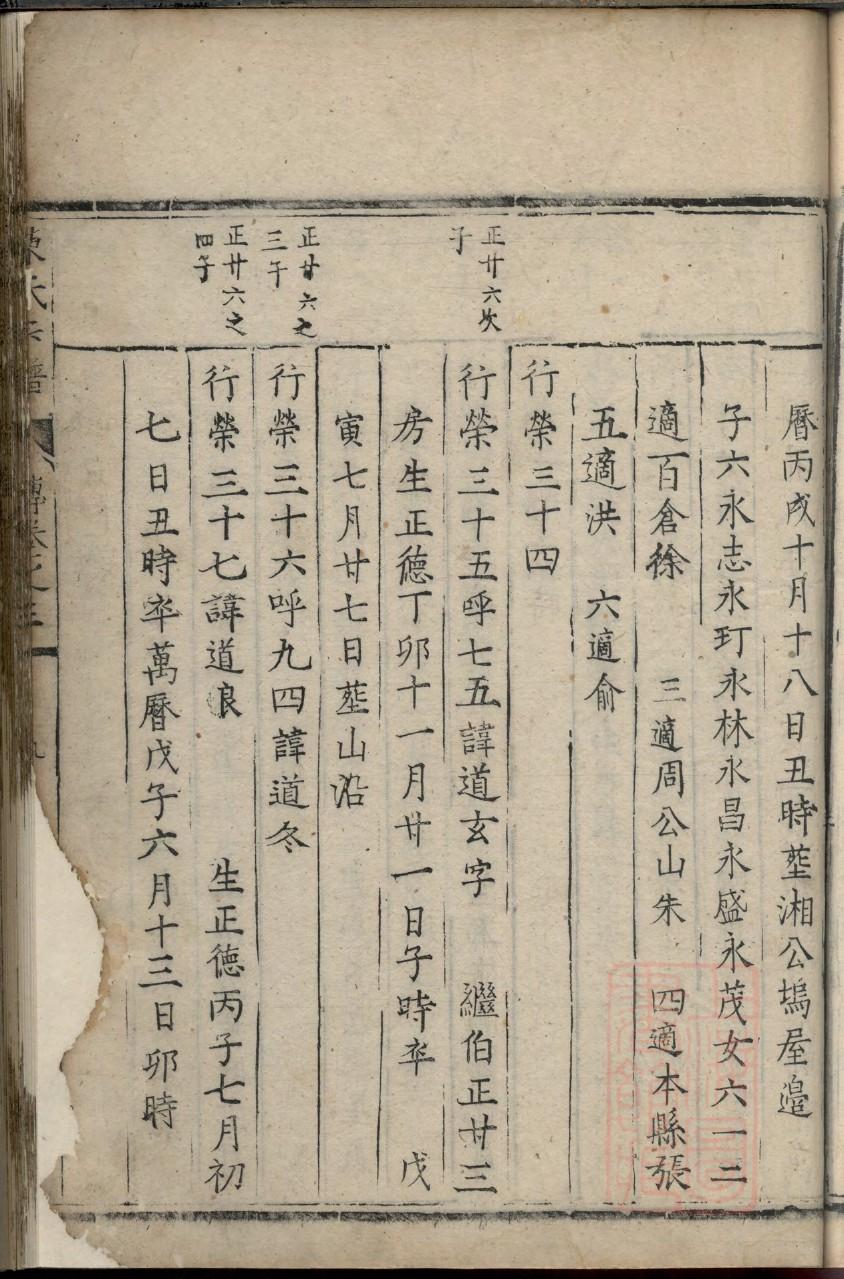 曆丙戌十月十八日丑時塟湘公塢屋邉
子六永志永玎永林永昌永盛永茂女六一二
適百倉徐 三適周公山朱 四適本縣張
五適洪 六適俞
行榮三十四
正廿六次
子
行榮三十五呼七五諱道玄字 繼伯正廿三
房生正德丁卯十一月廿一日子時卒 戊
寅七月廿七日塟山沿
正廿六之
三子
行榮三十六呼九四諱道冬
正廿六之
四子
行榮三十七諱道浪 生正德丙子七月初
七日丑時卒萬曆戊子六月十三日卯時